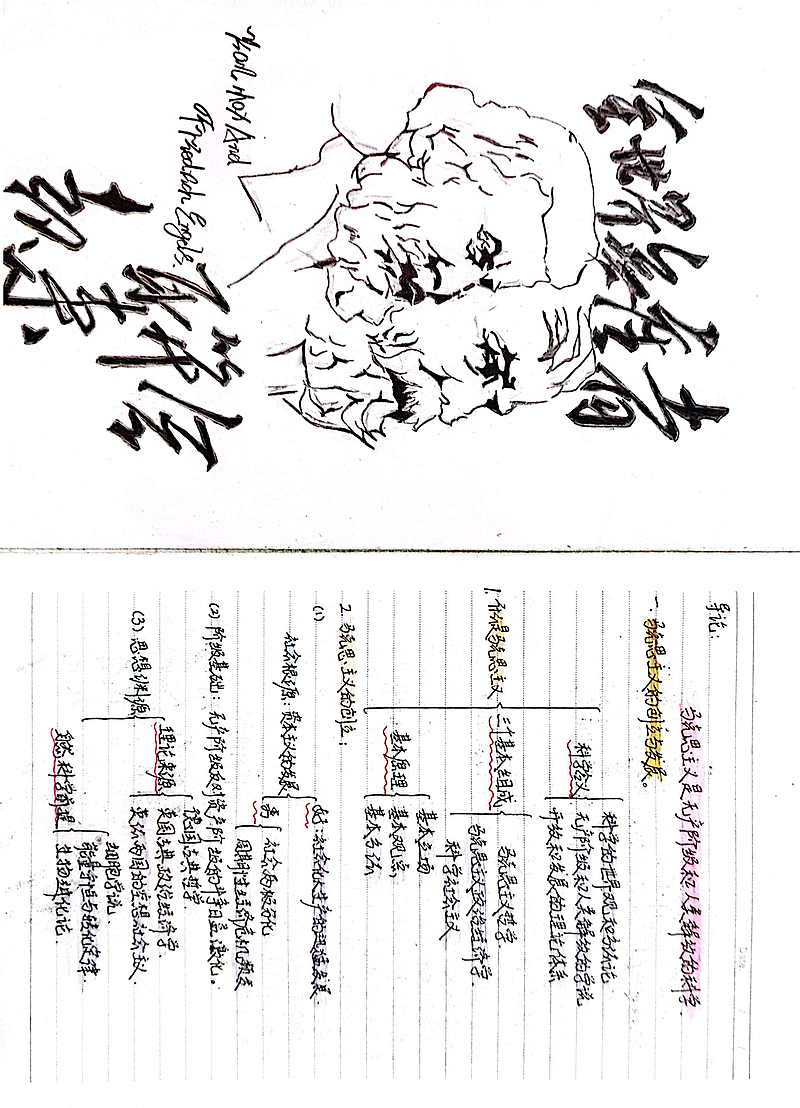 全世界無產者
Karl Marx And
Friedrich Engels.
导论:
马克思主义是无产阶级和人类解放的科学.
一. 马克思主义的创立与发展。
科学的世界观和方法论
科学含义 无产阶级和人类解放的学说
开放和发展的理论体系
马克思主义哲学
1. 什么是马克思主义 三个基本组成 马克思主义政治经济学.
科学社会主义
基本立场
基本原理 基本观点
基本方法
2. 马克思主义的创立:
(1) 好:社会化大生产的迅猛发展.
社会根源:资本主义的发展
社会两极分化
周期性经济危机频发
(2) 阶级基础:无产阶级反对资产阶级的斗争日益激化。
德国古典哲学.
(3) 思想渊源 理论来源 英国古典政治经济学.
英法两国的空想社会主义.
细胞学说.
自然科学前提 能量守恒与转化定律.
生物进化论.